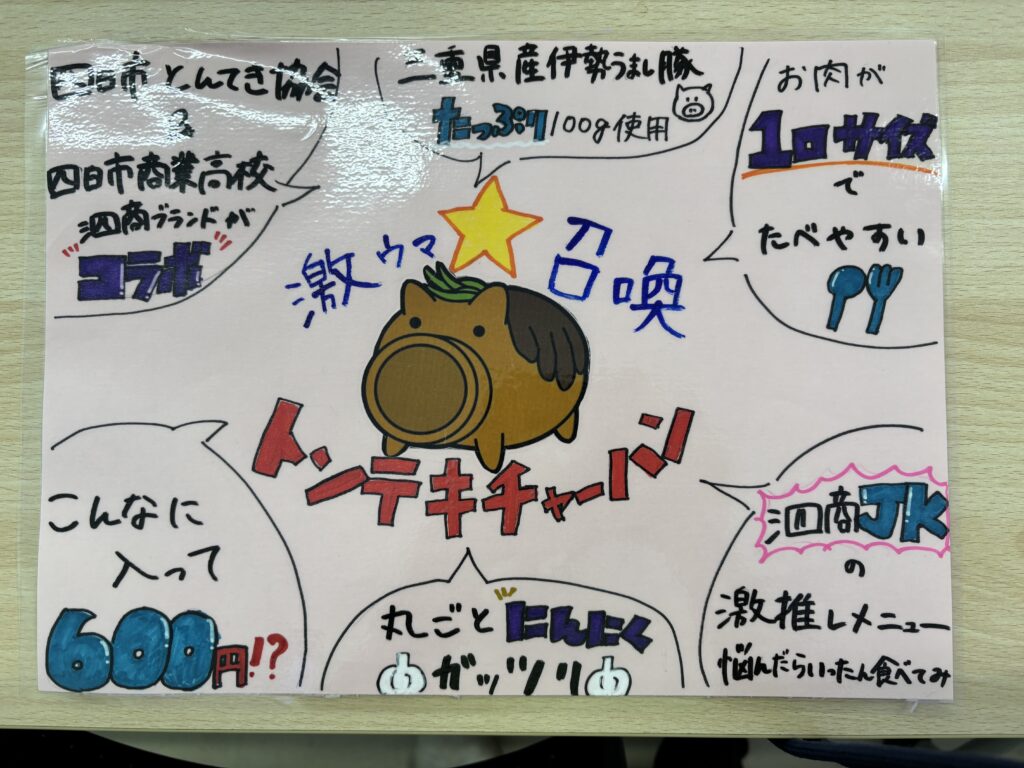 四日市とんてき協会
&
四日市商業高校
泗商ブランドが
コラボ
三重県産伊勢うまし豚
たっぷり100g使用
お肉が
1口サイズ
で
たべやすい
激ウマ召喚
トンテキチャーハン
こんなに
入って
600円!?
丸ごとにんにく
ガッツリ
泗商JK
の
激推しメニュー
悩んだらいったん食べてみ